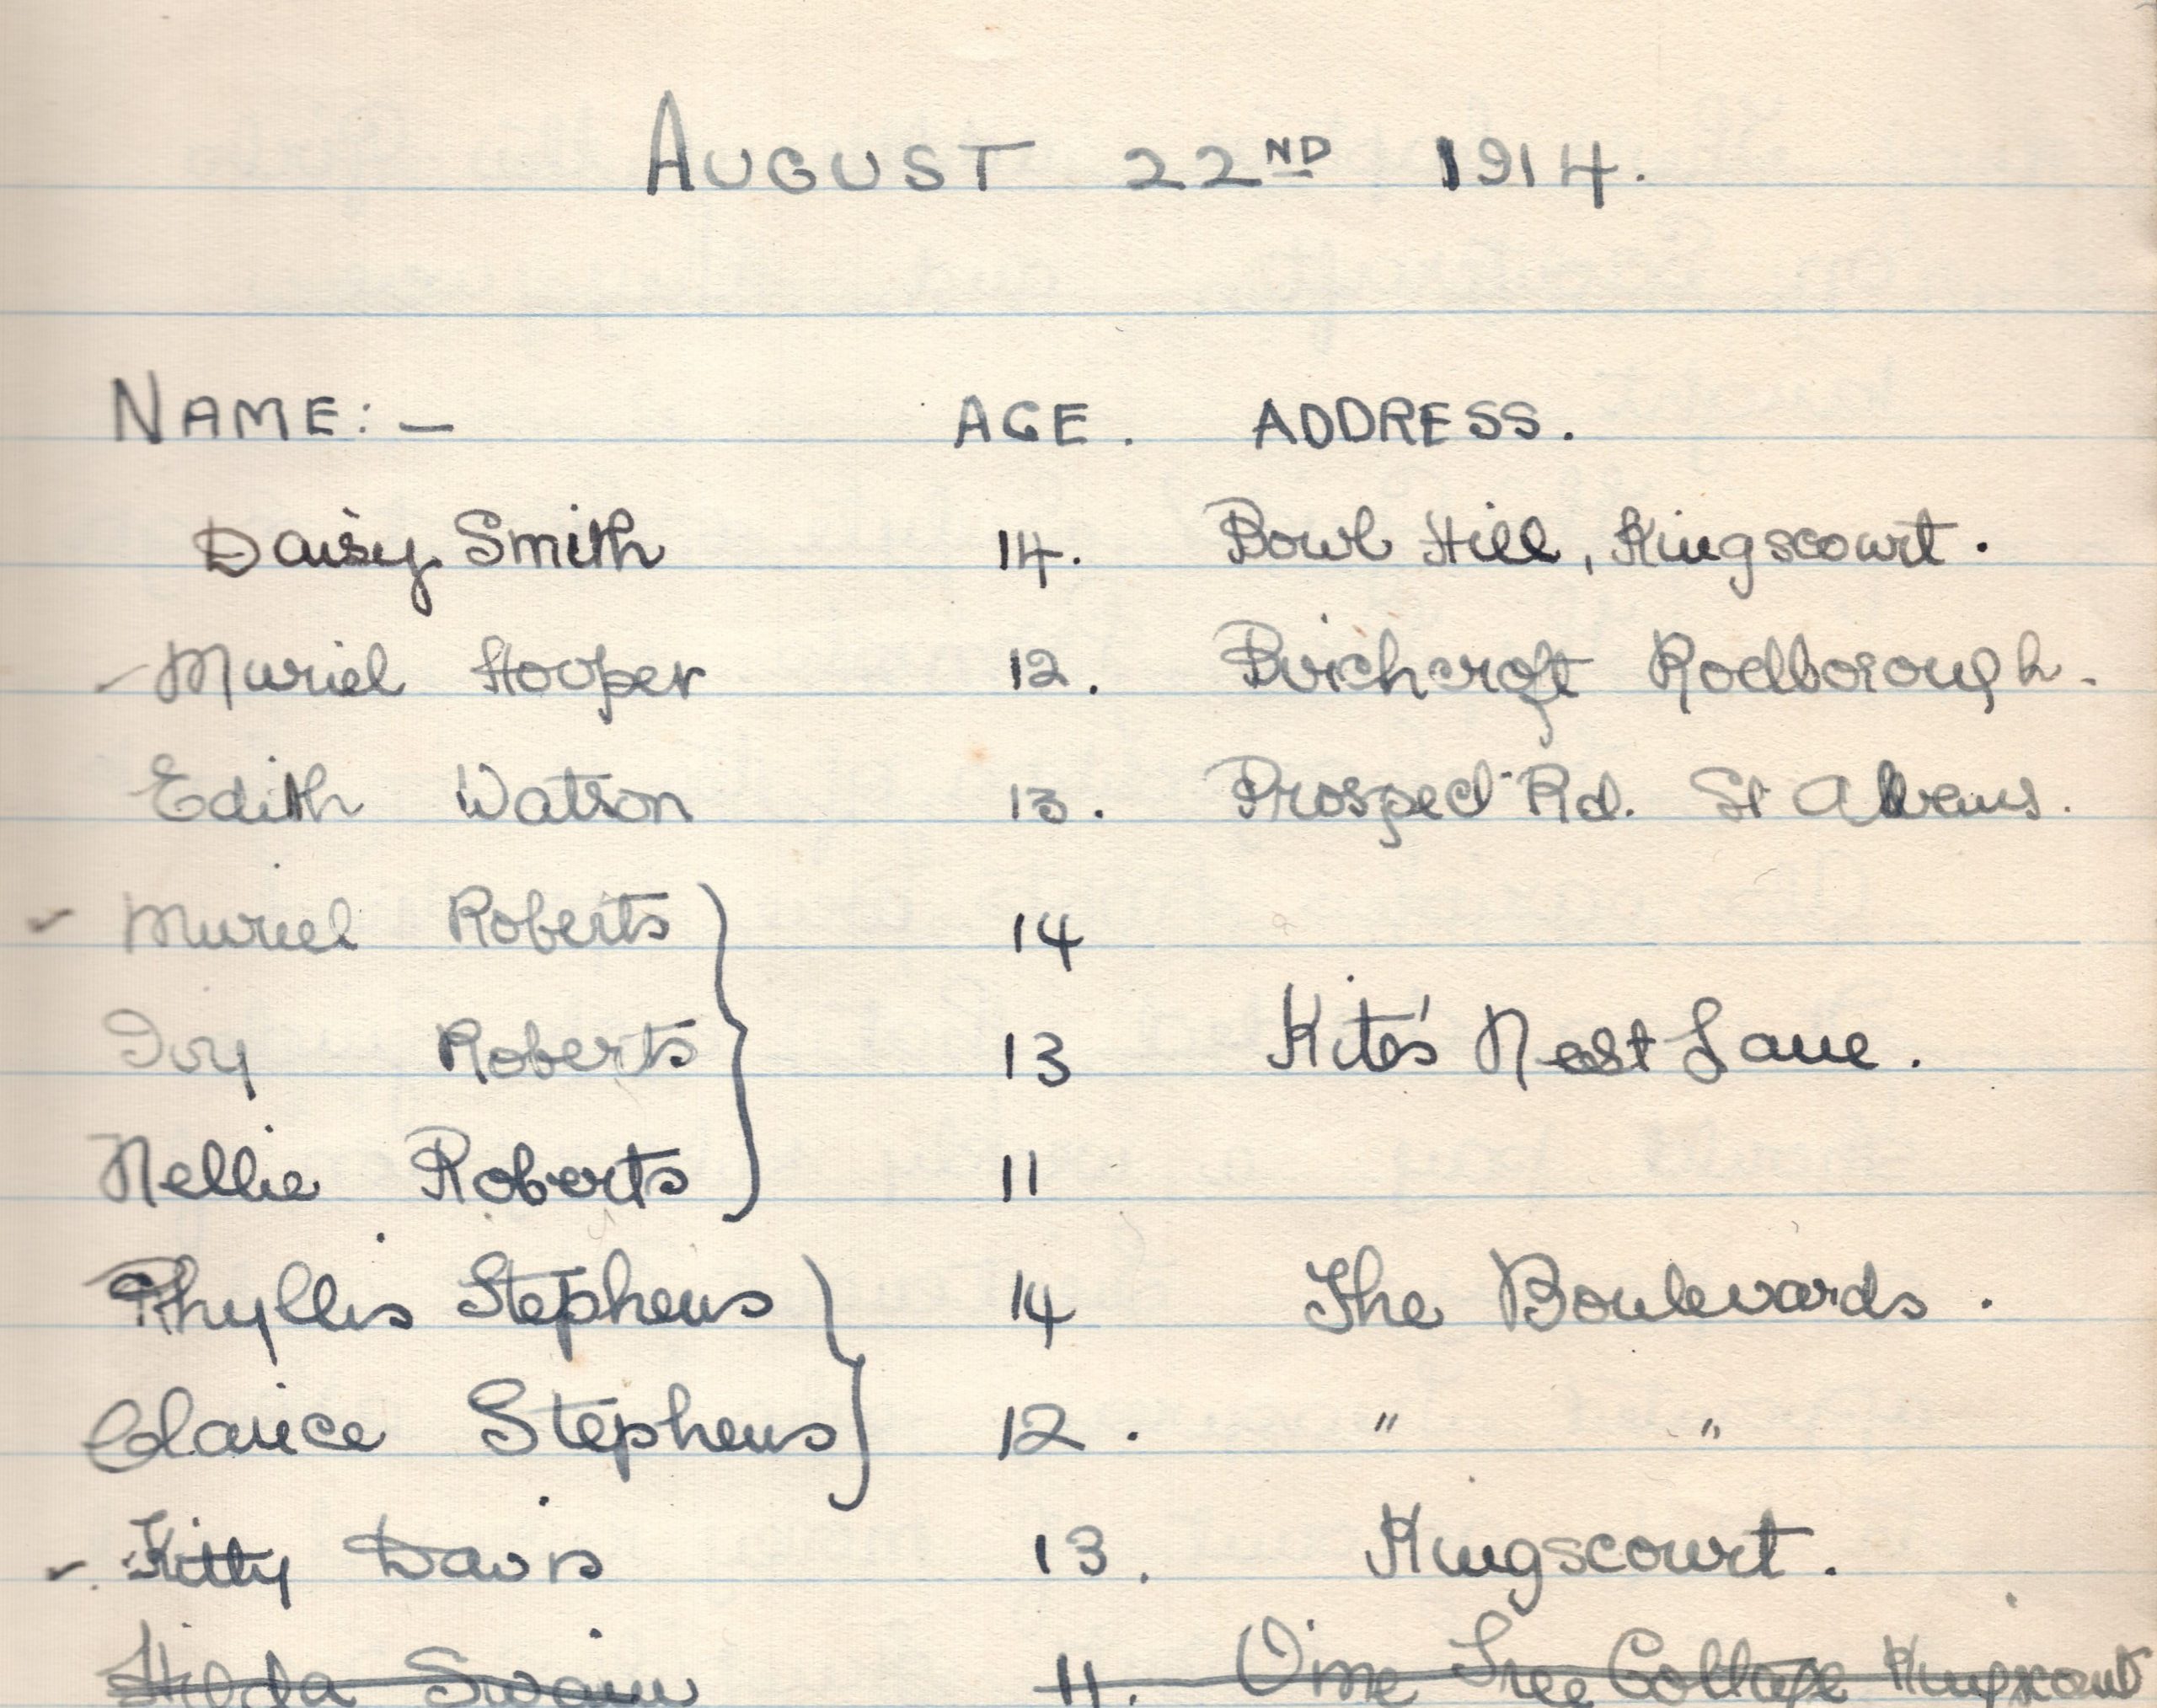 AUGUST 22ND 1914.
NAME:— AGE. ADDRESS.
Daisy Smith 14. Bowl Hill, Kingscourt.
Muriel Hooper 12. Birchcroft Rodborough.
Edith Watson 13. Prospect Rd. St Albans.
Muriel Roberts 14
Ivy Roberts 13 Kite's Nest Lane.
Nellie Roberts 11
Phyllis Stephens 14 The Boulevards.
Clarice Stephens 12. " "
Kitty Davis 13. Kingscourt.
Hilda Swain 11. Tree Cottage Kingscourt